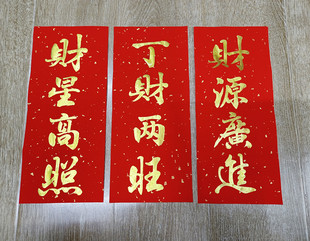 財星高照
丁財两旺
財源廣進